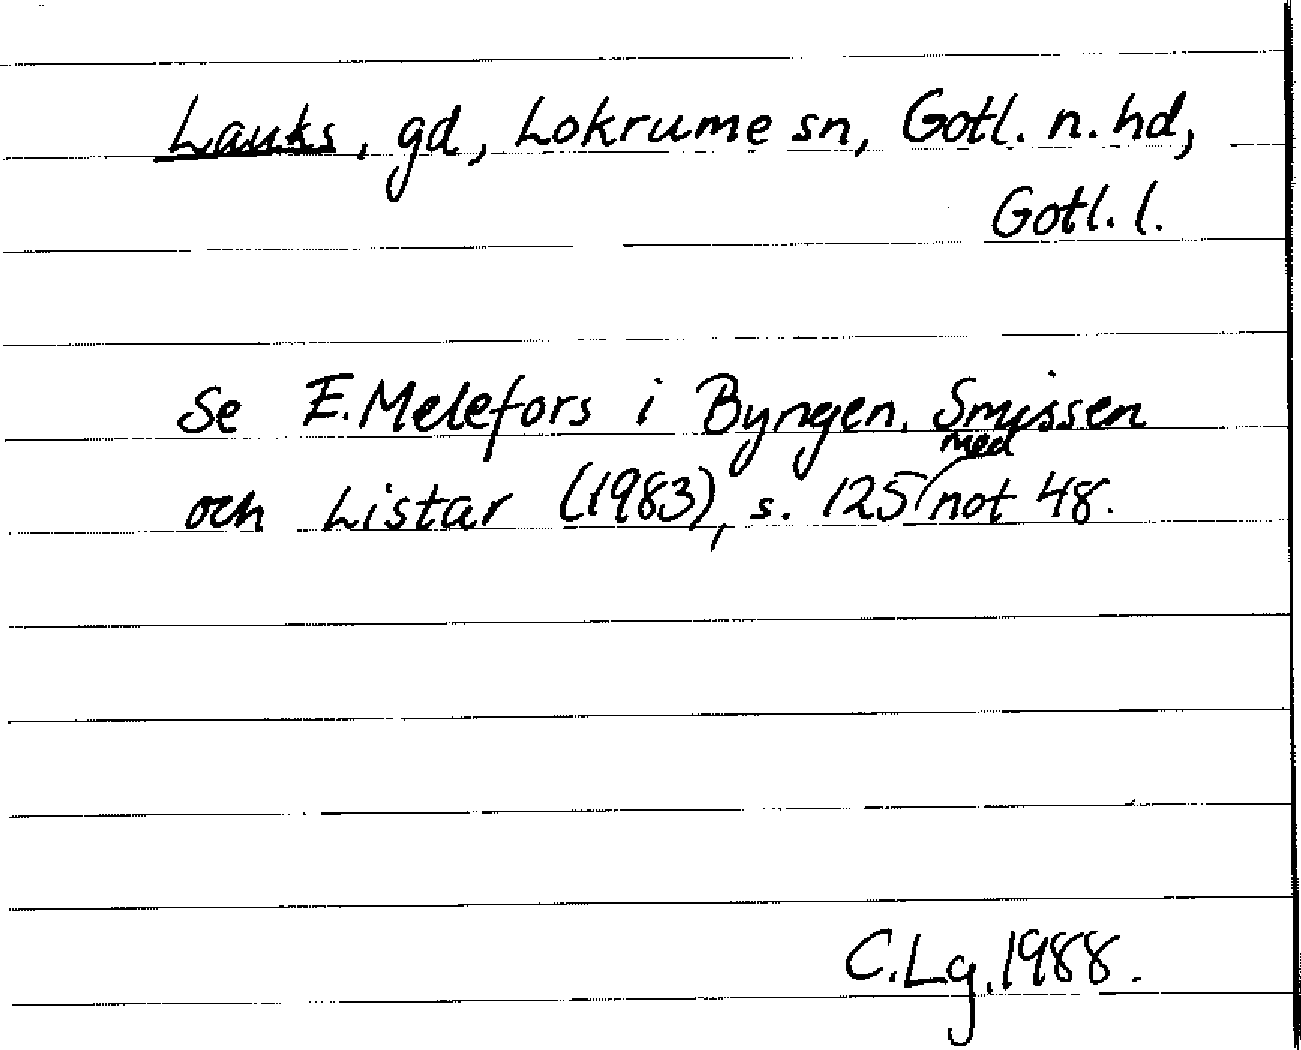 Lauks, gd, Lokrume sn, Gotl. n. hd,
Gotl. l.
Se E. Melefors i Byngen, Smissen
och Listar (1983), s. 125 med not 48.
C. Lg. 1988.